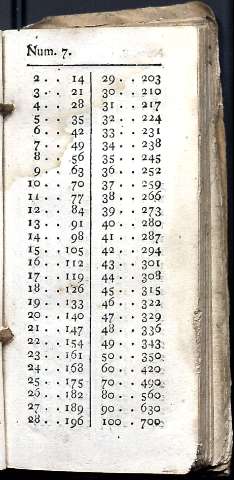 Num. 7.
2 . . 14 29 . . 203
3 . . 21 30 . . 210
4 . . 28 31 . . 217
5 . . 35 32 . . 224
6 . . 42 33 . . 231
7 . . 49 34 . . 238
8 . . 56 35 . . 245
9 . . 63 36 . . 252
10 . . 70 37 . . 259
11 . . 77 38 . . 266
12 . . 84 39 . . 273
13 . . 91 40 . . 280
14 . . 98 41 . . 287
15 . . 105 42 . . 294
16 . . 112 43 . . 301
17 . . 119 44 . . 308
18 . . 126 45 . . 315
19 . . 133 46 . . 322
20 . . 140 47 . . 329
21 . . 147 48 . . 336
22 . . 154 49 . . 343
23 . . 161 50 . . 350
24 . . 168 60 . . 420
25 . . 175 70 . . 490
26 . . 182 80 . . 560
27 . . 189 90 . . 630
28 . . 196 100 . . 700